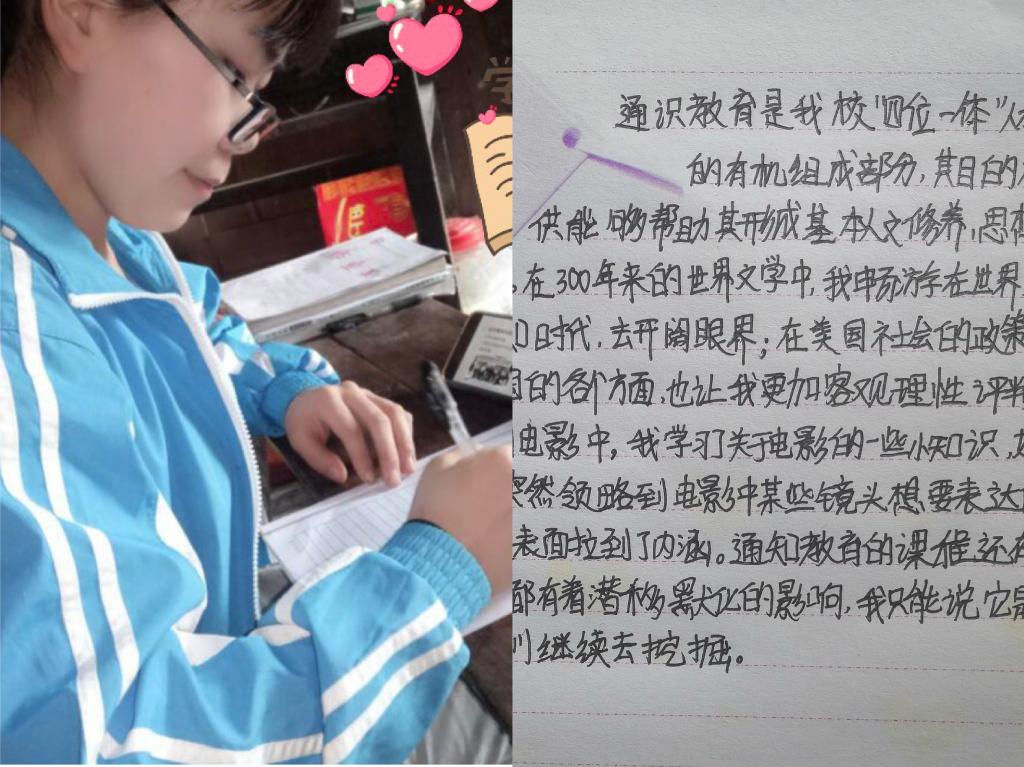 学
通识教育是我校“四位一体”人
的有机组成部分，其目的
供能够帮助其形成基本人文修养，思想
，在300年来的世界文学中，我申旆游存在世界
口时代，去开阔眼界；在美国社会的政策
国的各个方面，也让我更加客观理性评判
电影中，我学习关于电影的一些小知识，
突然领略到电影中某些镜头想要表达
表面拉到了内涵。通知教育的课程还在
都有着潜移默化的影响，我只能说它是
继续去挖掘。